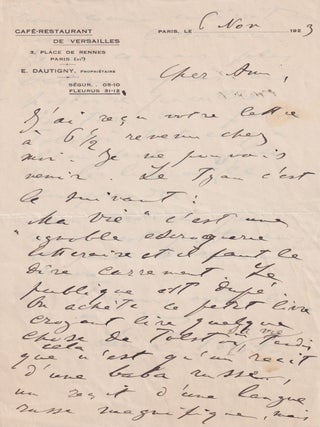 CAFÉ-RESTAURANT
DE VERSAILLES
3, PLACE DE RENNES
PARIS (VIe)
E. DAUTIGNY, PROPRIÉTAIRE
SÉGUR . 05-10
FLEURUS 31-12
PARIS, LE 6 Nov 1923
Cher Ami,
J'ai reçu votre lettre
à 6 1/2 revenu chez
moi. Je ne pouvais
venir. Le c'est
le suivant :
"Ma vie" c'est une
ignoble escroquerie
litteraire et il faut le
dire carrement. Le
publique est dupé.
On achète ce petit livre
croyant lire quelque
chose de Tolstoï, tandis
que cela n'est qu'un récit
d'une baba russe,
un reçit d'une langue
russe magnifique, mais